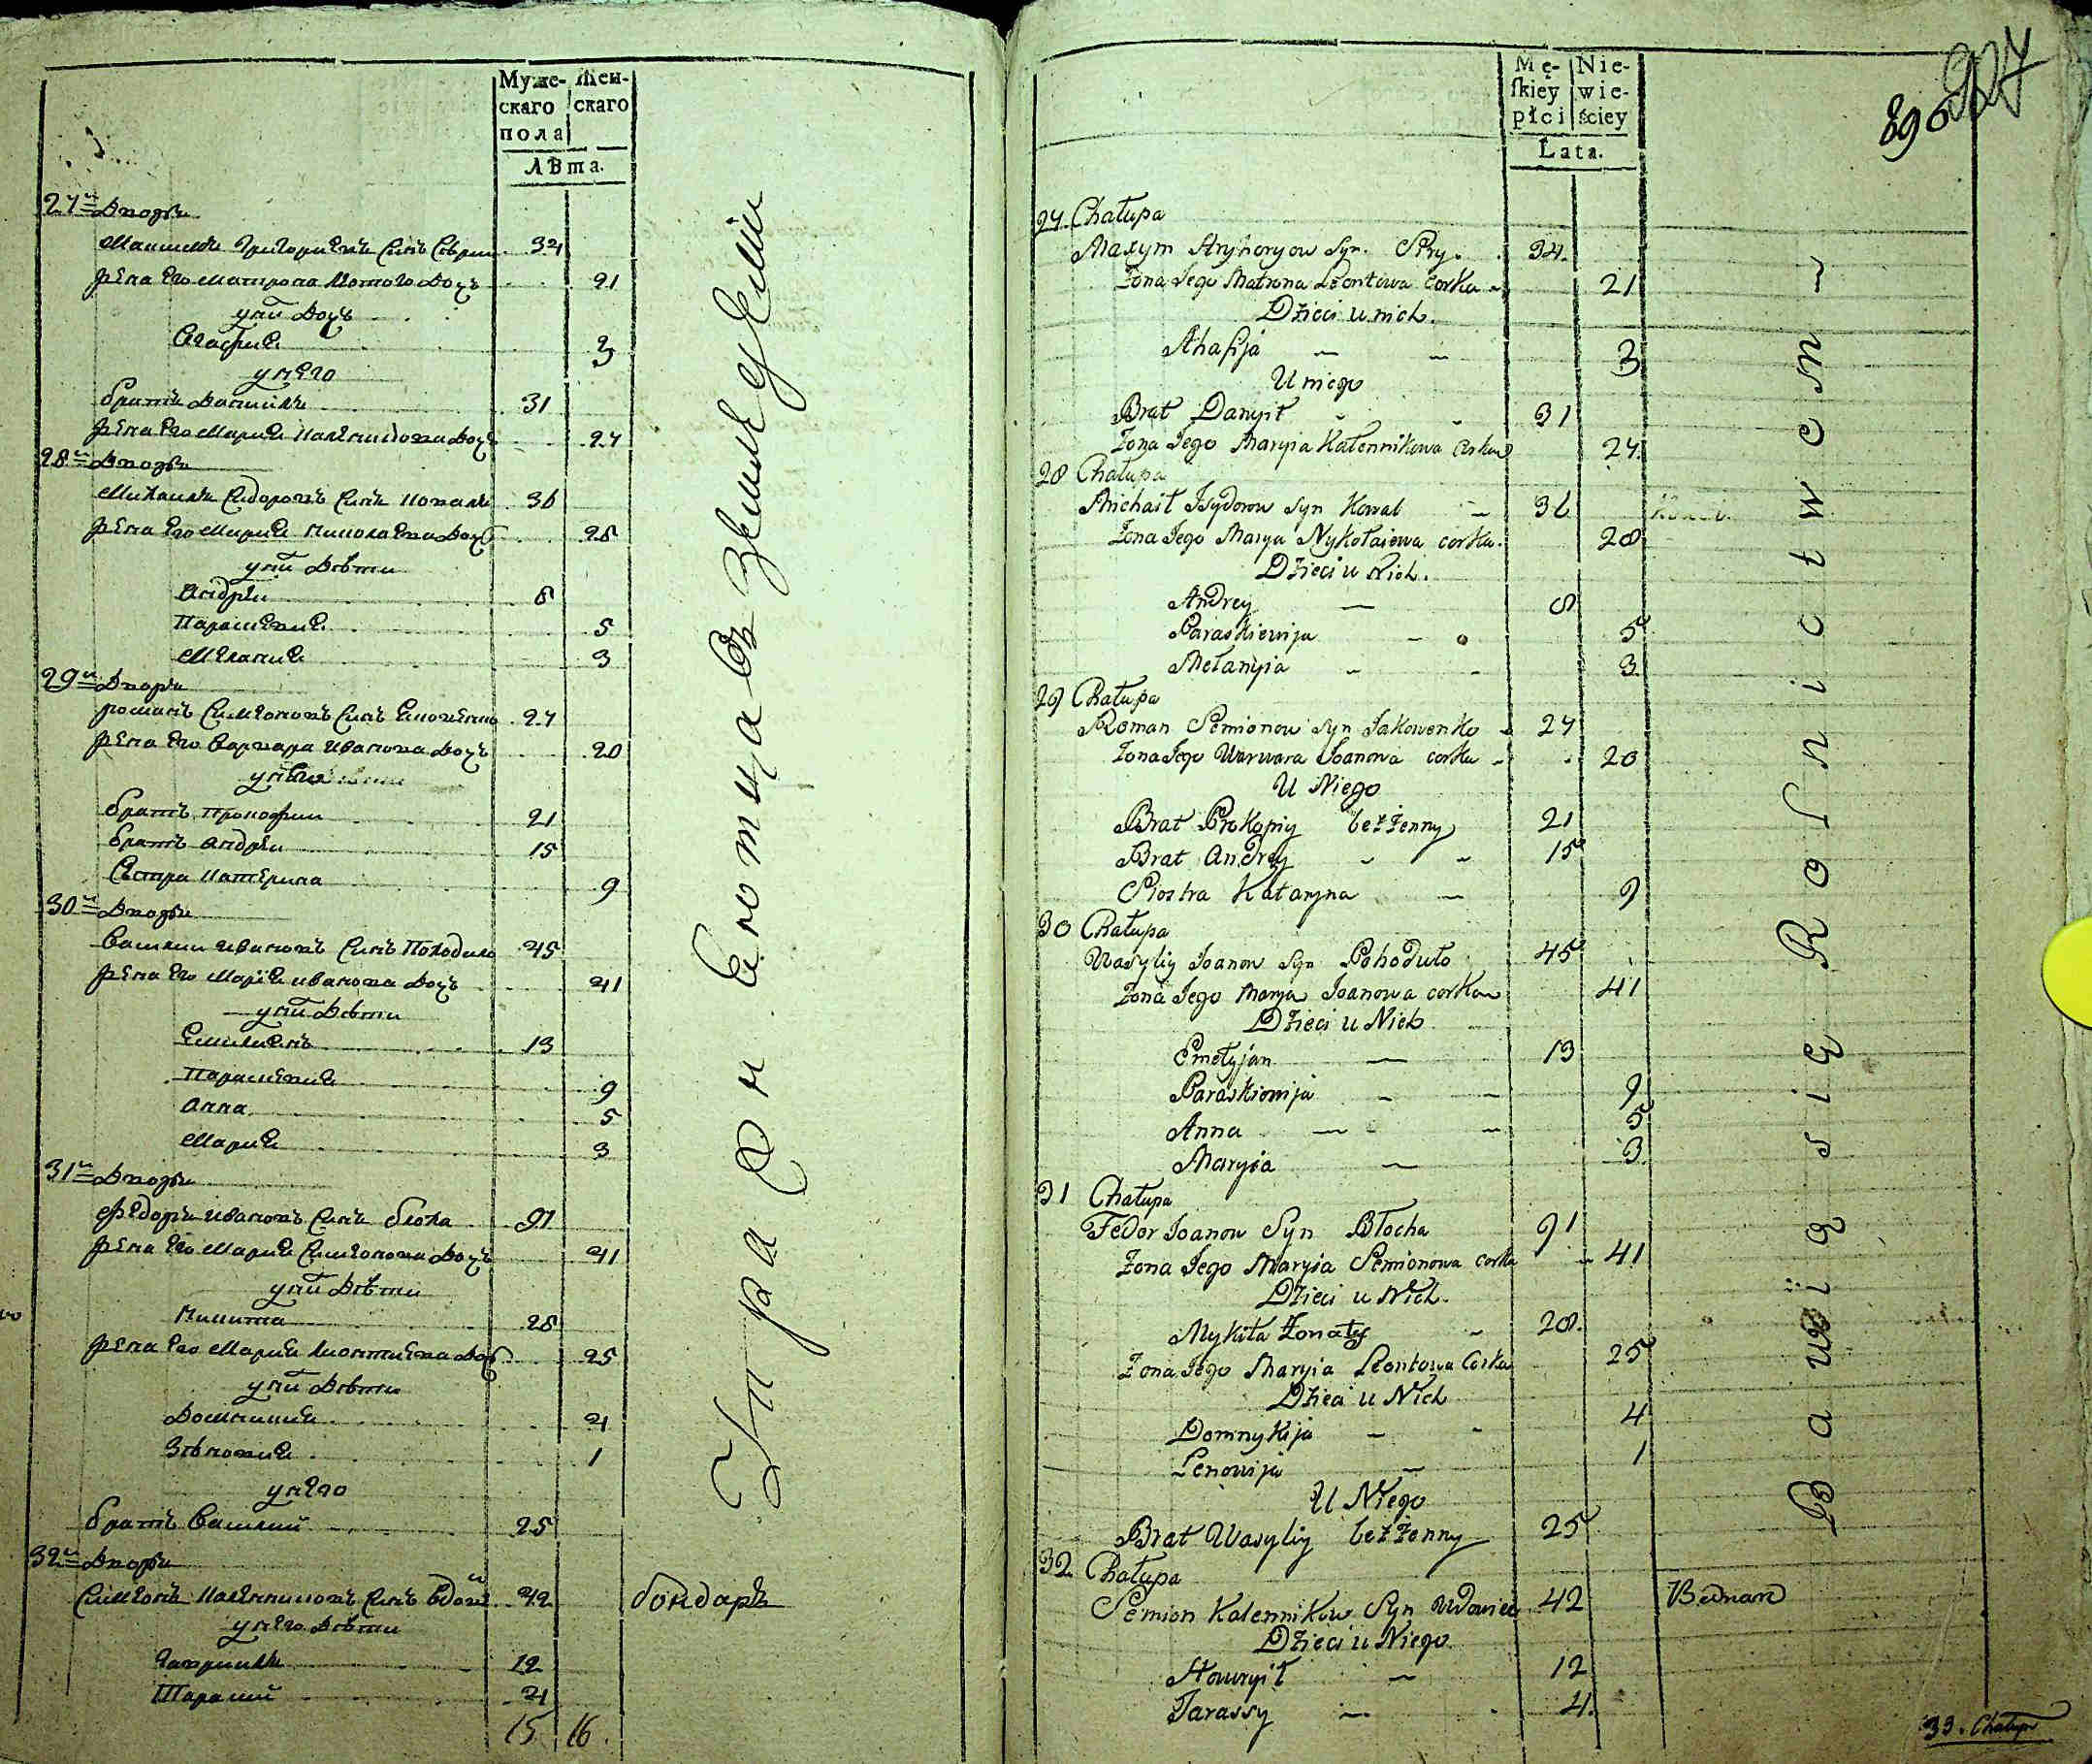 Муже-
скаго
пола
Жен-
скаго
Лѣта.
27й Дворъ
Максимъ Григориевъ Синъ 34
жена его Матрона Леонтова Дочь 21
у них Дочь
Агафия 3
у него
братъ Даниилъ 31
жена его Мария Каленикова Дочь 24
28й Дворъ
Михаилъ Сидоровъ Синъ Коваль 36
жена его Мария Николаева Дочь 28
у них Дѣти
Андрей 8
Параскевия 5
Мелания 3
29й Дворъ
Романъ Симеоновъ Синъ 27
жена его Варвара Иванова Дочь 20
у него
братъ Прокофий 21
братъ Андрей 15
Сестра Катерина 9
30й Дворъ
Василий Ивановъ Синъ Походило 45
жена его Мария Иванова Дочь 41
у них Дѣти
Емилианъ 13
Параскевия 9
Анна 5
Мария 3
31й Дворъ
Федоръ Ивановъ Синъ блоха 91
жена его Мария Симеонова Дочь 41
у них Дѣти
Никита 28
жена его Мария Леонтиева Дочь 25
у них Дѣти
Домникия 4
Зѣновия 1
у него
братъ Василий 25
32й Дворъ
Симеонъ Калениковъ Синъ вдовец 42 бондаръ
у него Дѣти
Гавриилъ 12
Тарасий 4
15 16.
Mę-
ſkiey
płci
Nie-
wie-
ściey
Lata.
896
27 Chałupa
Maxym Hryhoryow Syn 34.
Zona Jego Matrona Leontowa corka 21
Dzieci u nich.
Ahafija 3
U niego
Brat Danyił 31
Zona Jego Maryia Kalennikowa Corka 24.
28 Chałupa
Michaił Isydorow Syn Kowal 36
Zona Jego Marya Nykołaiewa corka. 28
Dzieci u Nich.
Andrey 8
Paraskiewija 5
Mełanyia 3
29 Chałupa
Roman Semionow Syn Jakowenko 27
Zona Jego Warwara Joanowa corka 20
U Niego
Brat Prokopiy bezżenny 21
Brat Andrey 15
Siostra Kataryna 9
30 Chałupa
Wasyliy Joanow Syn Pohodyło 45
Zona Jego Marya Joanowa corka 41
Dzieci u Nich
Emelyjan 13
Paraskiewija 9
Anna 5
Maryia 3
31 Chałupa
Fedor Joanow Syn Błocha 91
Zona Jego Maryia Semionowa corka 41
Dzieci u Nich.
Mykita Żonaty 28.
Zona Jego Maryia Leontowa Corka 25
Dzieci u Nich
Domnykija 4
Zenowija 1
U Niego
Brat Wasyliy bezżenny 25
32 Chałupa
Semion Kalennikow Syn Wdowiec 42 Bednarz
Dzieci u Niego
Hawryił 12
Tarassy 4.
Bawią się Rolnictwem
33. Chałup